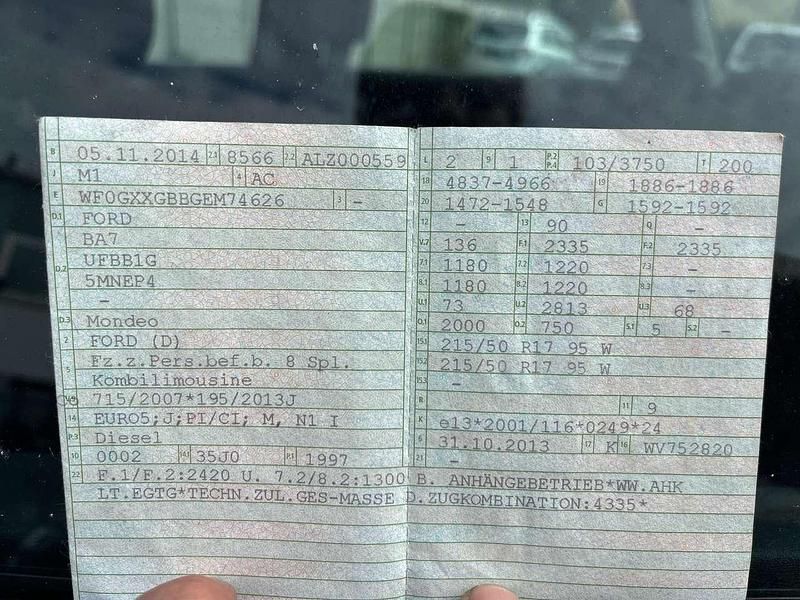 B 05.11.2014 2.1 8566 2.2 ALZ000559
J M1 4 AC
E WF0GXXGBBGEM74626 3 -
D.1 FORD
BA7
D.2 UFBB1G
5MNEP4
-
D.3 Mondeo
2 FORD (D)
5 Fz.z.Pers.bef.b. 8 Spl.
Kombilimousine
V.9 715/2007*195/2013J
14 EURO5;J;PI/CI; M, N1 I
P.3 Diesel
10 0002 14.1 35J0 P.1 1997
22 F.1/F.2:2420 U. 7.2/8.2:1300 B. ANHÄNGEBETRIEB*WW.AHK
LT.EGTG*TECHN.ZUL.GES-MASSE D.ZUGKOMBINATION:4335*
L 2 9 1 P.2 P.4 103/3750 T 200
18 4837-4966 19 1886-1886
20 1472-1548 G 1592-1592
12 - 13 90 Q -
V.7 136 F.1 2335 F.2 2335
7.1 1180 7.2 1220 7.3 -
8.1 1180 8.2 1220 8.3 -
U.1 73 U.2 2813 U.3 68
O.1 2000 O.2 750 S.1 5 S.2 -
15.1 215/50 R17 95 W
15.2 215/50 R17 95 W
15.3 -
R 11 9
K e13*2001/116*0249*24
6 31.10.2013 17 K 16 WV752820
21 -